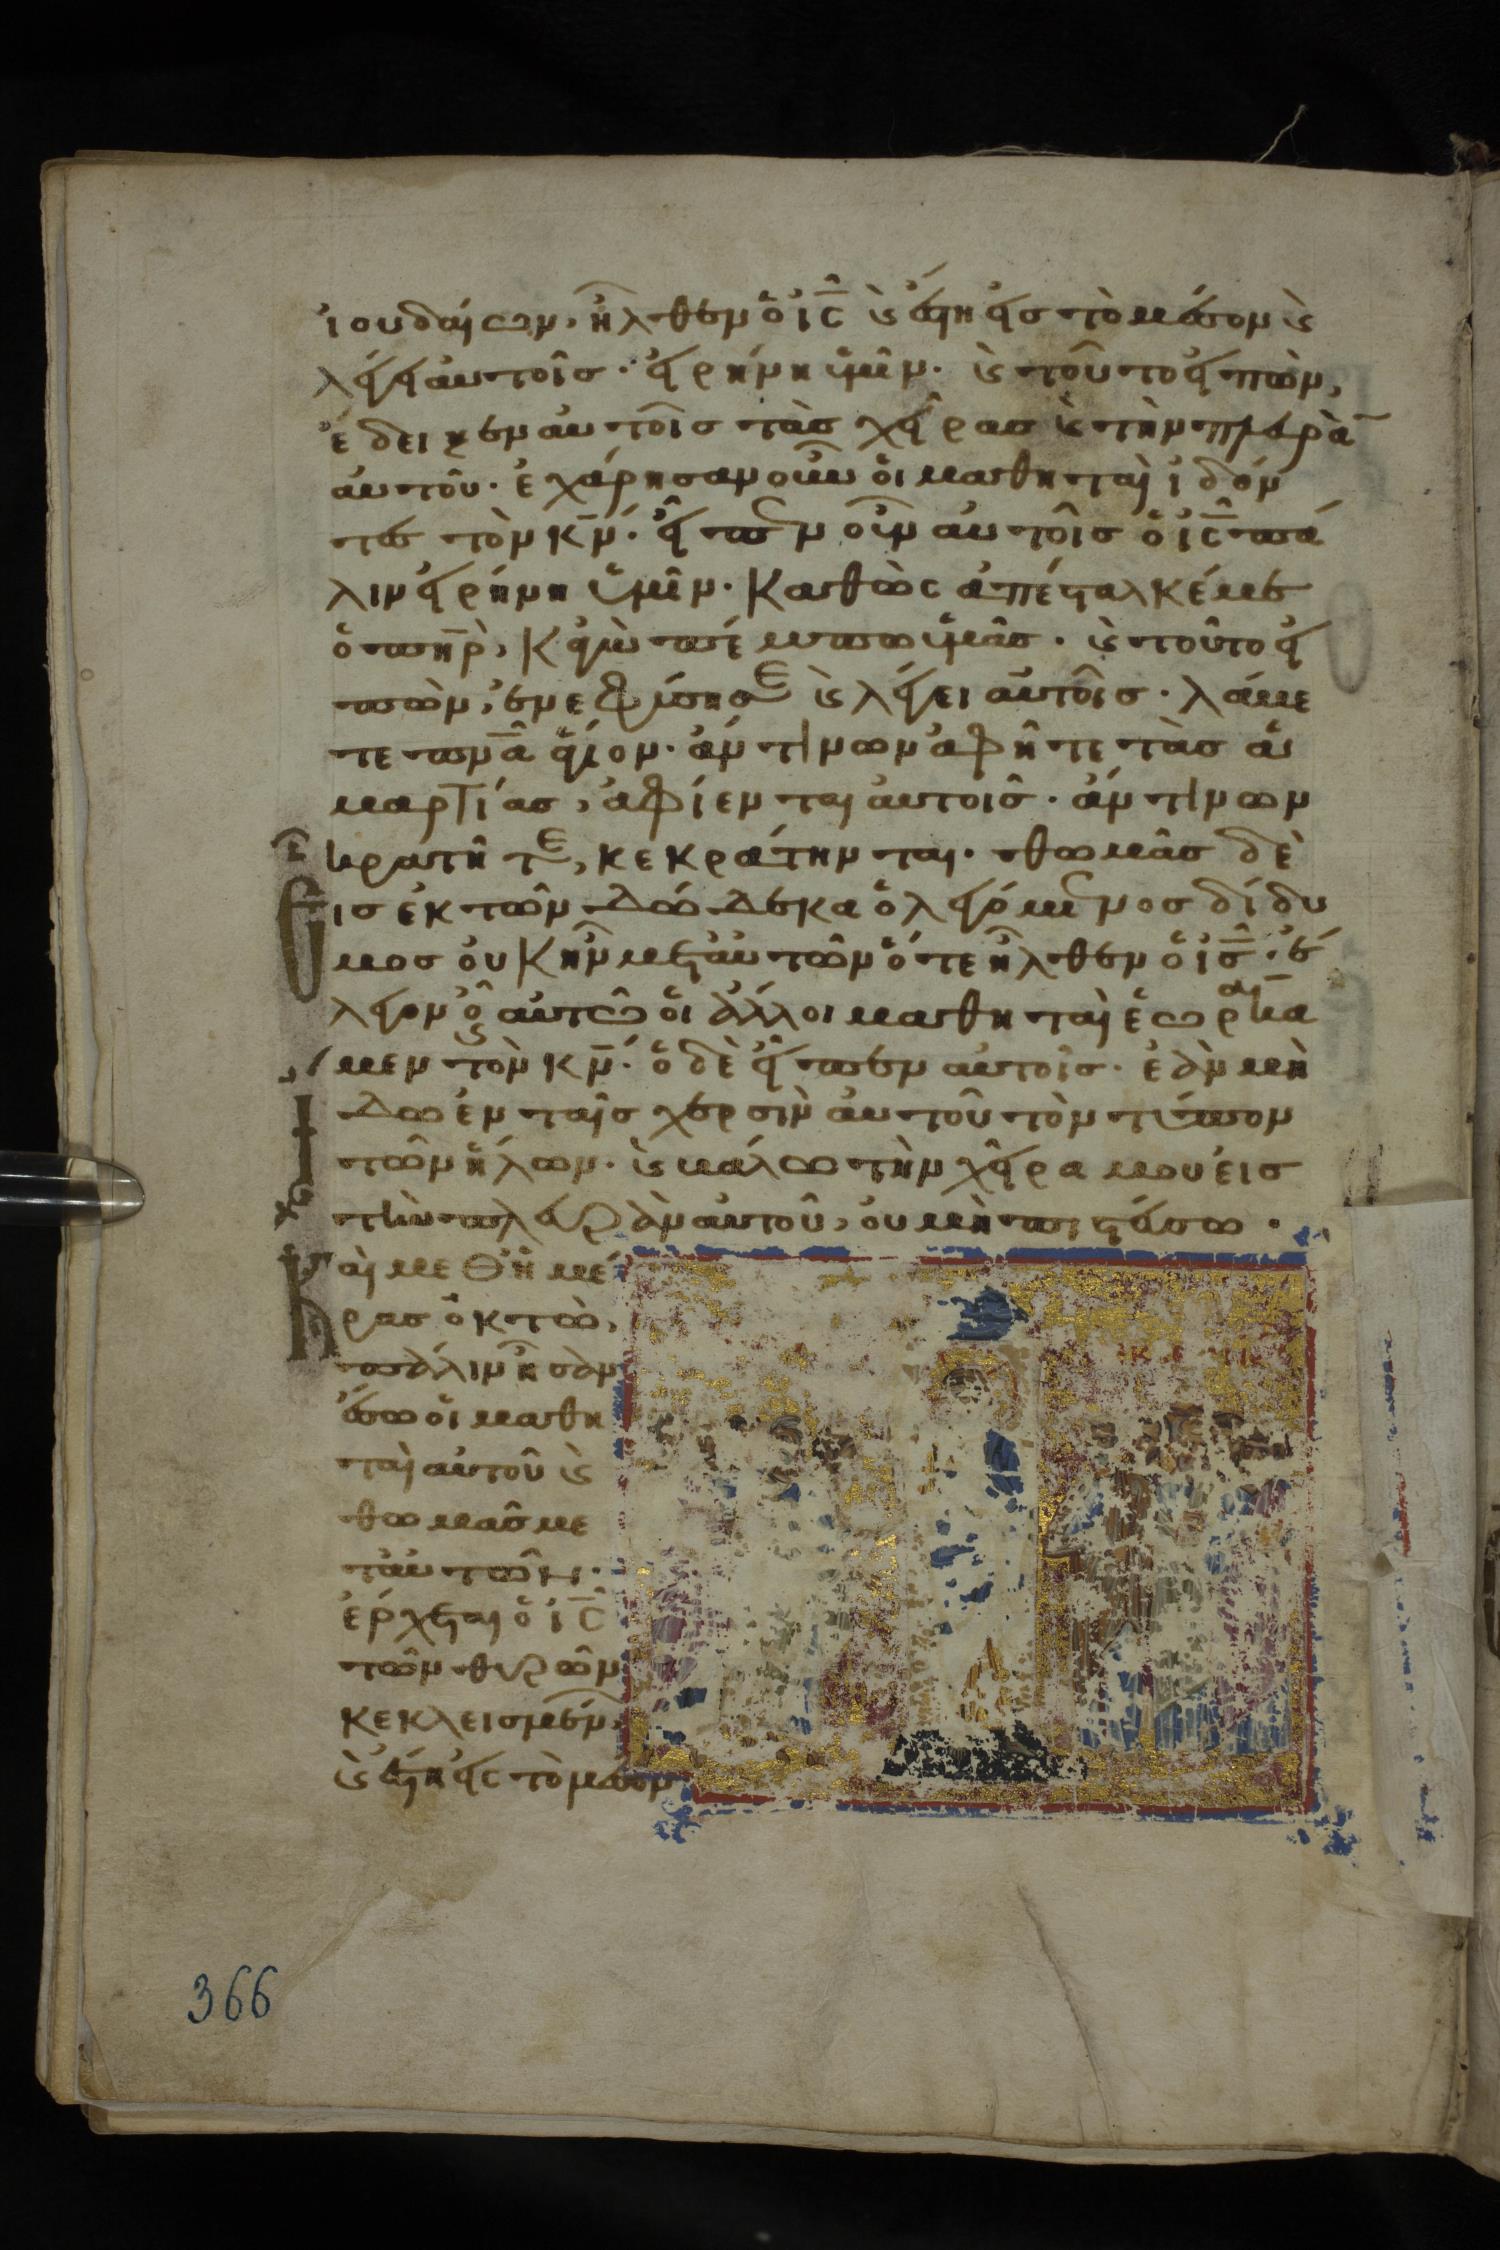 ἰουδαίων, ἦλθεν ὁ ἰς̅ ϗ ἔστη εἰς τὸ μέσον ϗ
λέγει αὐτοῖς· εἰρήνη ὑμῖν· ϗ τοῦτο εἰπὼν,
ἔδειξεν αὐτοῖς τὰς χεῖρας ϗ τὴν πλευρὰ̅
αὐτοῦ· ἐχάρησαν οὖν οἱ μαθηταὶ ἰδόν
τες τὸν κν̅· εἶπεν οὖν αὐτοῖς ὁ ἰς̅ πά
λιν εἰρήνη ὑμῖν· Καθὼς ἀπέσταλκέ με
ὁ πηρ̅, κἀγὼ πέμπω ὑμᾶς· ϗ τοῦτο εἰ
πὼν, ἐνεφύσησε ϗ λέγει αὐτοῖς· λάβε
τε πνα̅ ἅγιον· ἄν τινων ἀφῆτε τὰς ἁ
μαρτίας, ἀφίενται αὐτοῖς· ἄν τινων
κρατῆτε, κεκράτηνται· θωμᾶς δὲ
εἷς ἐκ τῶν δώδεκα ὁ λεγόμενος δίδυ
μος οὐκ ἦν μετ αὐτῶν ὅτε ἦλθεν ὁ ἰς̅· ἔ
λεγον οὖν αὐτῶ οἱ ἄλλοι μαθηταὶ ἑωράκα
μεν τὸν κν̅· ὁ δὲ εἶπεν αὐτοῖς· ἐὰν μὴ
ἴδω ἐν ταῖς χερσὶν αὐτοῦ τὸν τύπον
τῶν ἥλων· ϗ βάλω τὴν χεῖρα μου εἰς
τὴν πλευρὰν αὐτοῦ, οὐ μὴ πιστεύσω·
Καὶ μεθ ἡμέ
ρας ὀκτὼ,
πάλιν ἦσαν
ἔσω οἱ μαθη
ταὶ αὐτοῦ ϗ
θωμᾶς με
τ αὐτῶν·
ἔρχεται ὁ ἰς̅
τῶν θυρῶν
κεκλεισμένων,
ϗ ἔστη εἰς τὸ μέσον
366